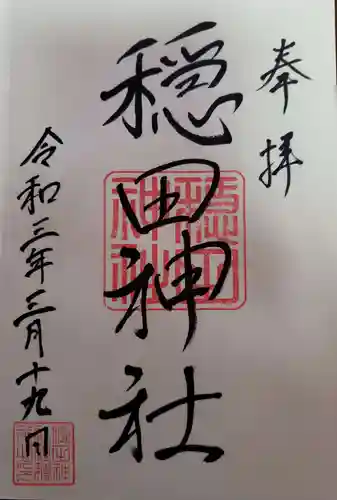 奉拝
穏田神社
令和三年三月十九日
穏田
神社